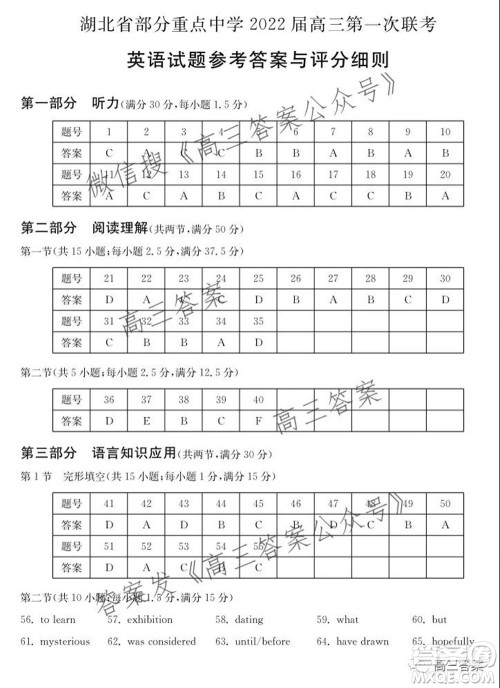 湖北省部分重点中学 2022 届高三第一次联考
英语试题参考答案与评分细则
第一部分 听力(满分 30 分,每小题 1.5 分)
题号 1 2 3 4 5 6 7 8 9 10
答案 C A C B B A B B
题号 11 12 13 14 15 16 17 18 19 20
答案 A C A B B A B A C
第二部分 阅读理解(共两节,满分 50 分)
第一节(共 15 小题;每小题 2.5 分,满分 37.5 分)
题号 21 22 23 24 25 26 27 28 29 30
答案 D A C D C A C D
题号 31 32 33 34 35
答案 C B B A D
第二节(共 5 小题;每小题 2.5 分,满分 12.5 分)
题号 36 37 38 39 40
答案 D E B C F
第三部分 语言知识应用(共两节,满分 30 分)
第 1 节 完形填空(共 15 小题;每小题 1 分,满分 15 分)
题号 41 42 43 44 45 46 47 48 49 50
答案 D A D B C A B C A
题号 51 52 53 54 55
答案 D D C C
第二节(共 10 小题;每小题 1.5 分,满分 15 分)
56. to learn 57. exhibition 58. dating 59. what 60. but
61. mysterious 62. was considered 63. until/before 64. have drawn 65. hopefully
微信搜《高三答案公众号》
高三答案
高三答案
答案发《高三答案公众号》
高三答案
答案圈
MXQE.COM